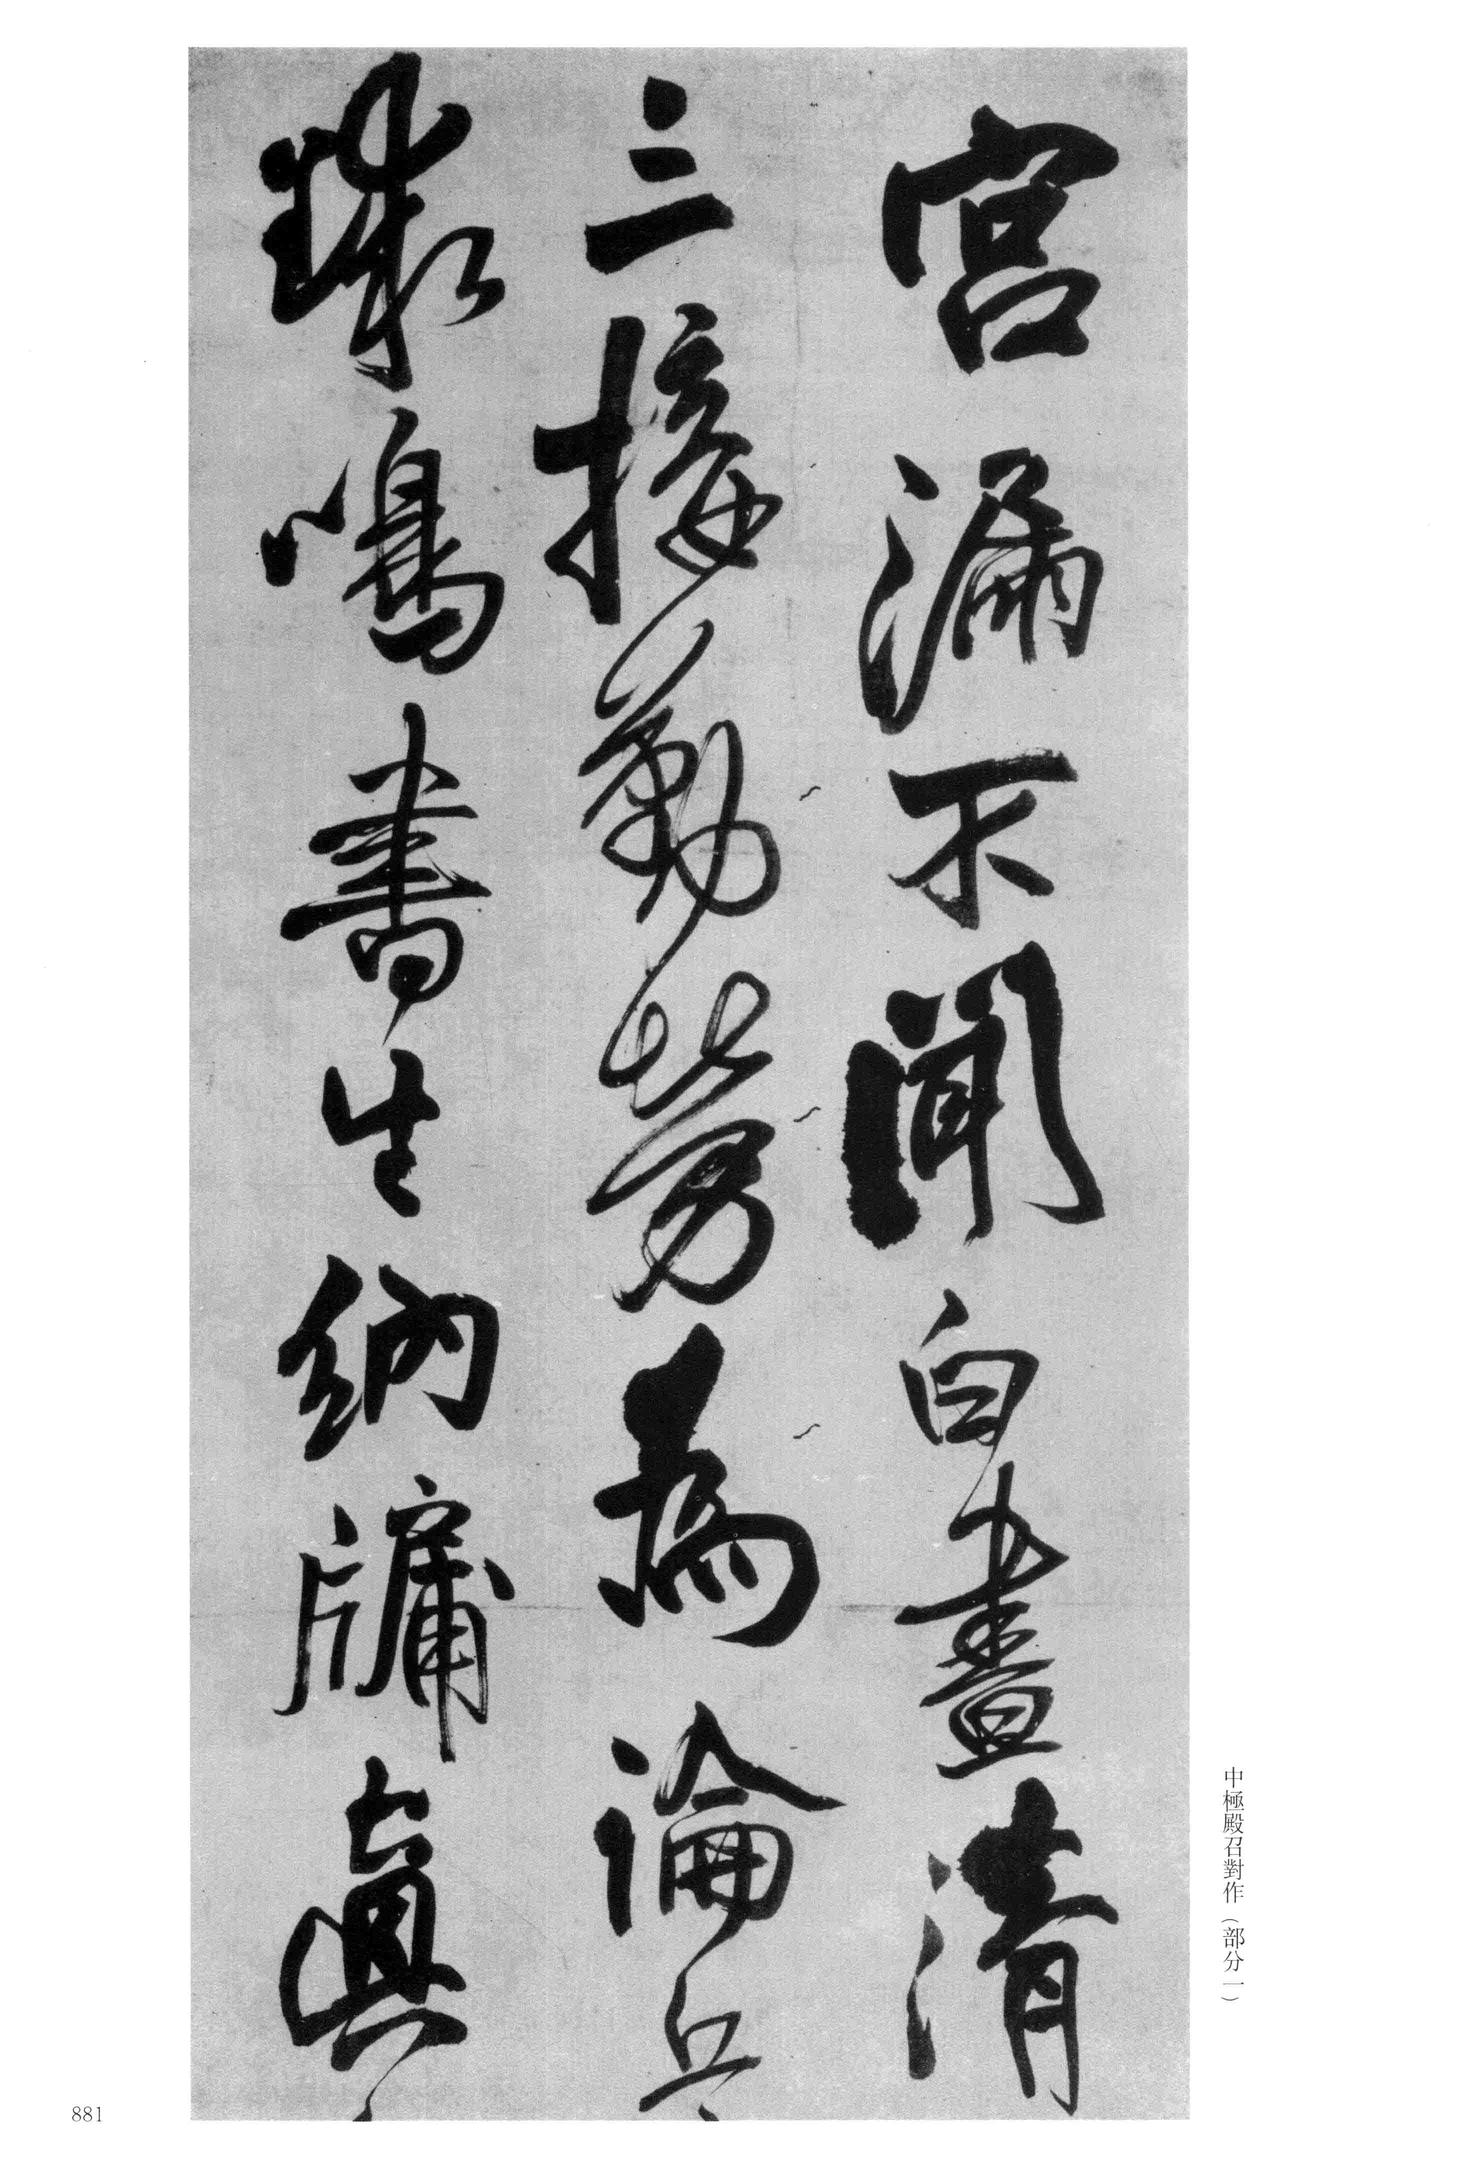 宮漏不聞白晝清
三接勤勞為論兵
鳴書生納牖真
中極殿召對作（部分一）
881